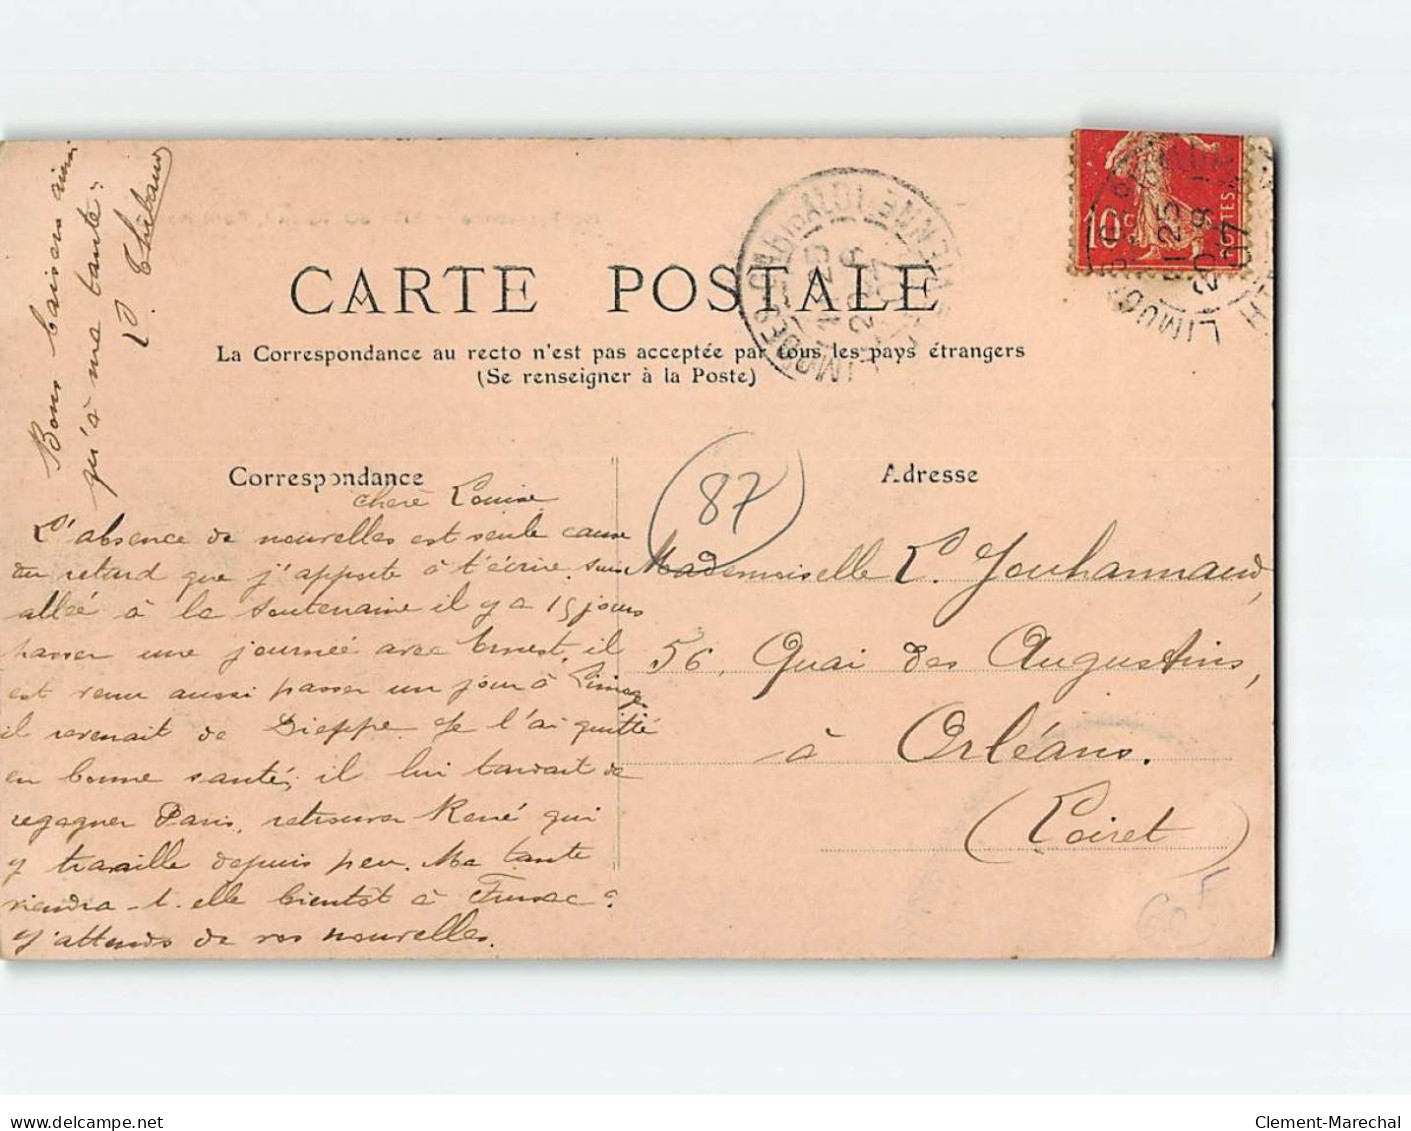 Bons baisers ainsi
qu'à ma tante.
L. Thibaud
CARTE POSTALE
La Correspondance au recto n'est pas acceptée par tous les pays étrangers
(Se renseigner à la Poste)
LIMOGES GARIBALDI
Hte VIENNE
11 25
20 9
07
10c
POSTES
Correspondance
Adresse
87
chere Louise
L'absence de nouvelles est seule cause
du retard que j'apporte à t'écrire. Suis
allée à la Souteraine il y a 15 jours
passer une journée avec Ernest, il
est venu aussi passer un jour à Limoges
il revenait de Dieppe. Je l'ai quitté
en bonne santé, il lui tardait de
regagner Paris, retrouver René qui
y travaille depuis peu. Ma tante
viendra-t-elle bientôt à Fursac?
J'attends de vos nouvelles.
Mademoiselle L. Jouhannaud,
56, Quai des Augustins,
à Orléans.
(Loiret)
Clement-Marechal